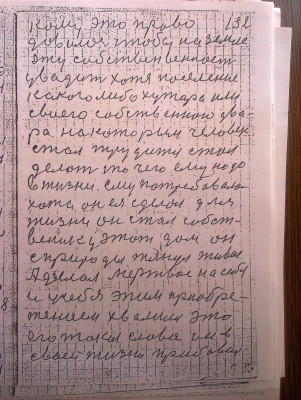 кому это право 132
довилос чтобы на земле
эту собственност
увидит хотя поселение
какого либо хутара или
своего собственного дво-
ра. на котором человек
стал трудится стал
делат то чего ему надо
в жизни. ему потребовалос
хота он ея сделал для
жизни он стал собст-
венику этот дом он
с природы тянул живое
а делал мертвое на себя
и учебя этим приобре-
тением хвалил это
его такия слова он в
своей жизни прибавил